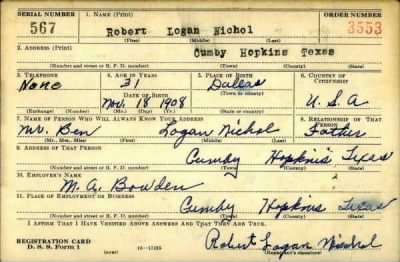 SERIAL NUMBER 1. NAME (Print) ORDER NUMBER
567 Robert Logan Nichol 3553
(First) (Middle) (Last)
2. ADDRESS (Print)
Cumby Hopkins Texas
(Number and street or R. F. D. number) (Town) (County) (State)
3. TELEPHONE 4. AGE IN YEARS 5. PLACE OF BIRTH 6. COUNTRY OF CITIZENSHIP
None 31 Dallas
DATE OF BIRTH
Nov. 18 1908 U.S.A
(Exchange) (Number) (Mo.) (Day) (Yr.) (State or country)
7. NAME OF PERSON WHO WILL ALWAYS KNOW YOUR ADDRESS 8. RELATIONSHIP OF THAT PERSON
Mr. Ben Logan Nichol Father
(Mr., Mrs., Miss) (First) (Middle) (Last)
9. ADDRESS OF THAT PERSON
Cumby Hopkins Texas
(Number and street or R. F. D. number) (Town) (County) (State)
10. EMPLOYER'S NAME
M. A. Bowden
11. PLACE OF EMPLOYMENT OR BUSINESS
Cumby Hopkins Texas
(Number and street or R. F. D. number) (Town) (County) (State)
I AFFIRM THAT I HAVE VERIFIED ABOVE ANSWERS AND THAT THEY ARE TRUE.
REGISTRATION CARD
D. S. S. Form 1 (over) 16-17105
Robert Logan Nichol
(Registrant's signature)